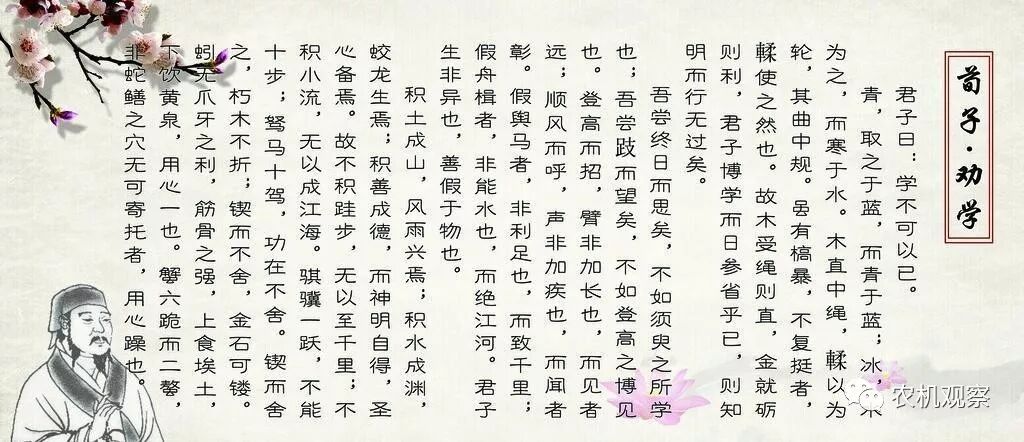 荀子·劝学
君子曰：学不可以已。
青，取之于蓝，而青于蓝；冰，水
为之，而寒于水。木直中绳，輮以为
轮，其曲中规。虽有槁暴，不复挺者，
輮使之然也。故木受绳则直，金就砺
则利，君子博学而日参省乎已，则知
明而行无过矣。
吾尝终日而思矣，不如须臾之所学
也；吾尝跂而望矣，不如登高之博见
也。登高而招，臂非加长也，而见者
远；顺风而呼，声非加疾也，而闻者
彰。假舆马者，非利足也，而致千里；
假舟楫者，非能水也，而绝江河。君子
生非异也，善假于物也。
积土成山，风雨兴焉；积水成渊，
蛟龙生焉；积善成德，而神明自得，圣
心备焉。故不积跬步，无以至千里；不
积小流，无以成江海。骐骥一跃，不能
十步；驽马十驾，功在不舍。锲而舍
之，朽木不折；锲而不舍，金石可镂。
蚓无爪牙之利，筋骨之强，上食埃土，
下饮黄泉，用心一也。蟹六跪而二螯，
非蛇鳝之穴无可寄托者，用心躁也。
农机观察